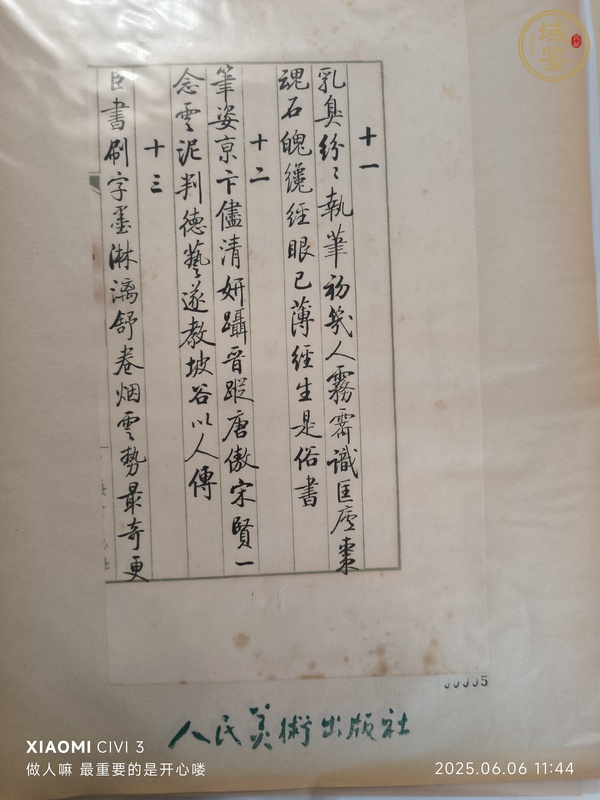 十一
乳臭紛〻執筆初幾人霧霽識匡廬棗
魂石魄纔經眼已薄經生是俗書
十二
筆姿京卞儘清妍躡晉蹤唐傲宋賢一
念雲泥判德藝遂教坡谷以人傳
十三
臣書刷字墨淋漓舒卷烟雲勢最奇更
人民美術出版社
XIAOMI CIVI 3
做人嘛 最重要的是开心喽
2025.06.06 11:44